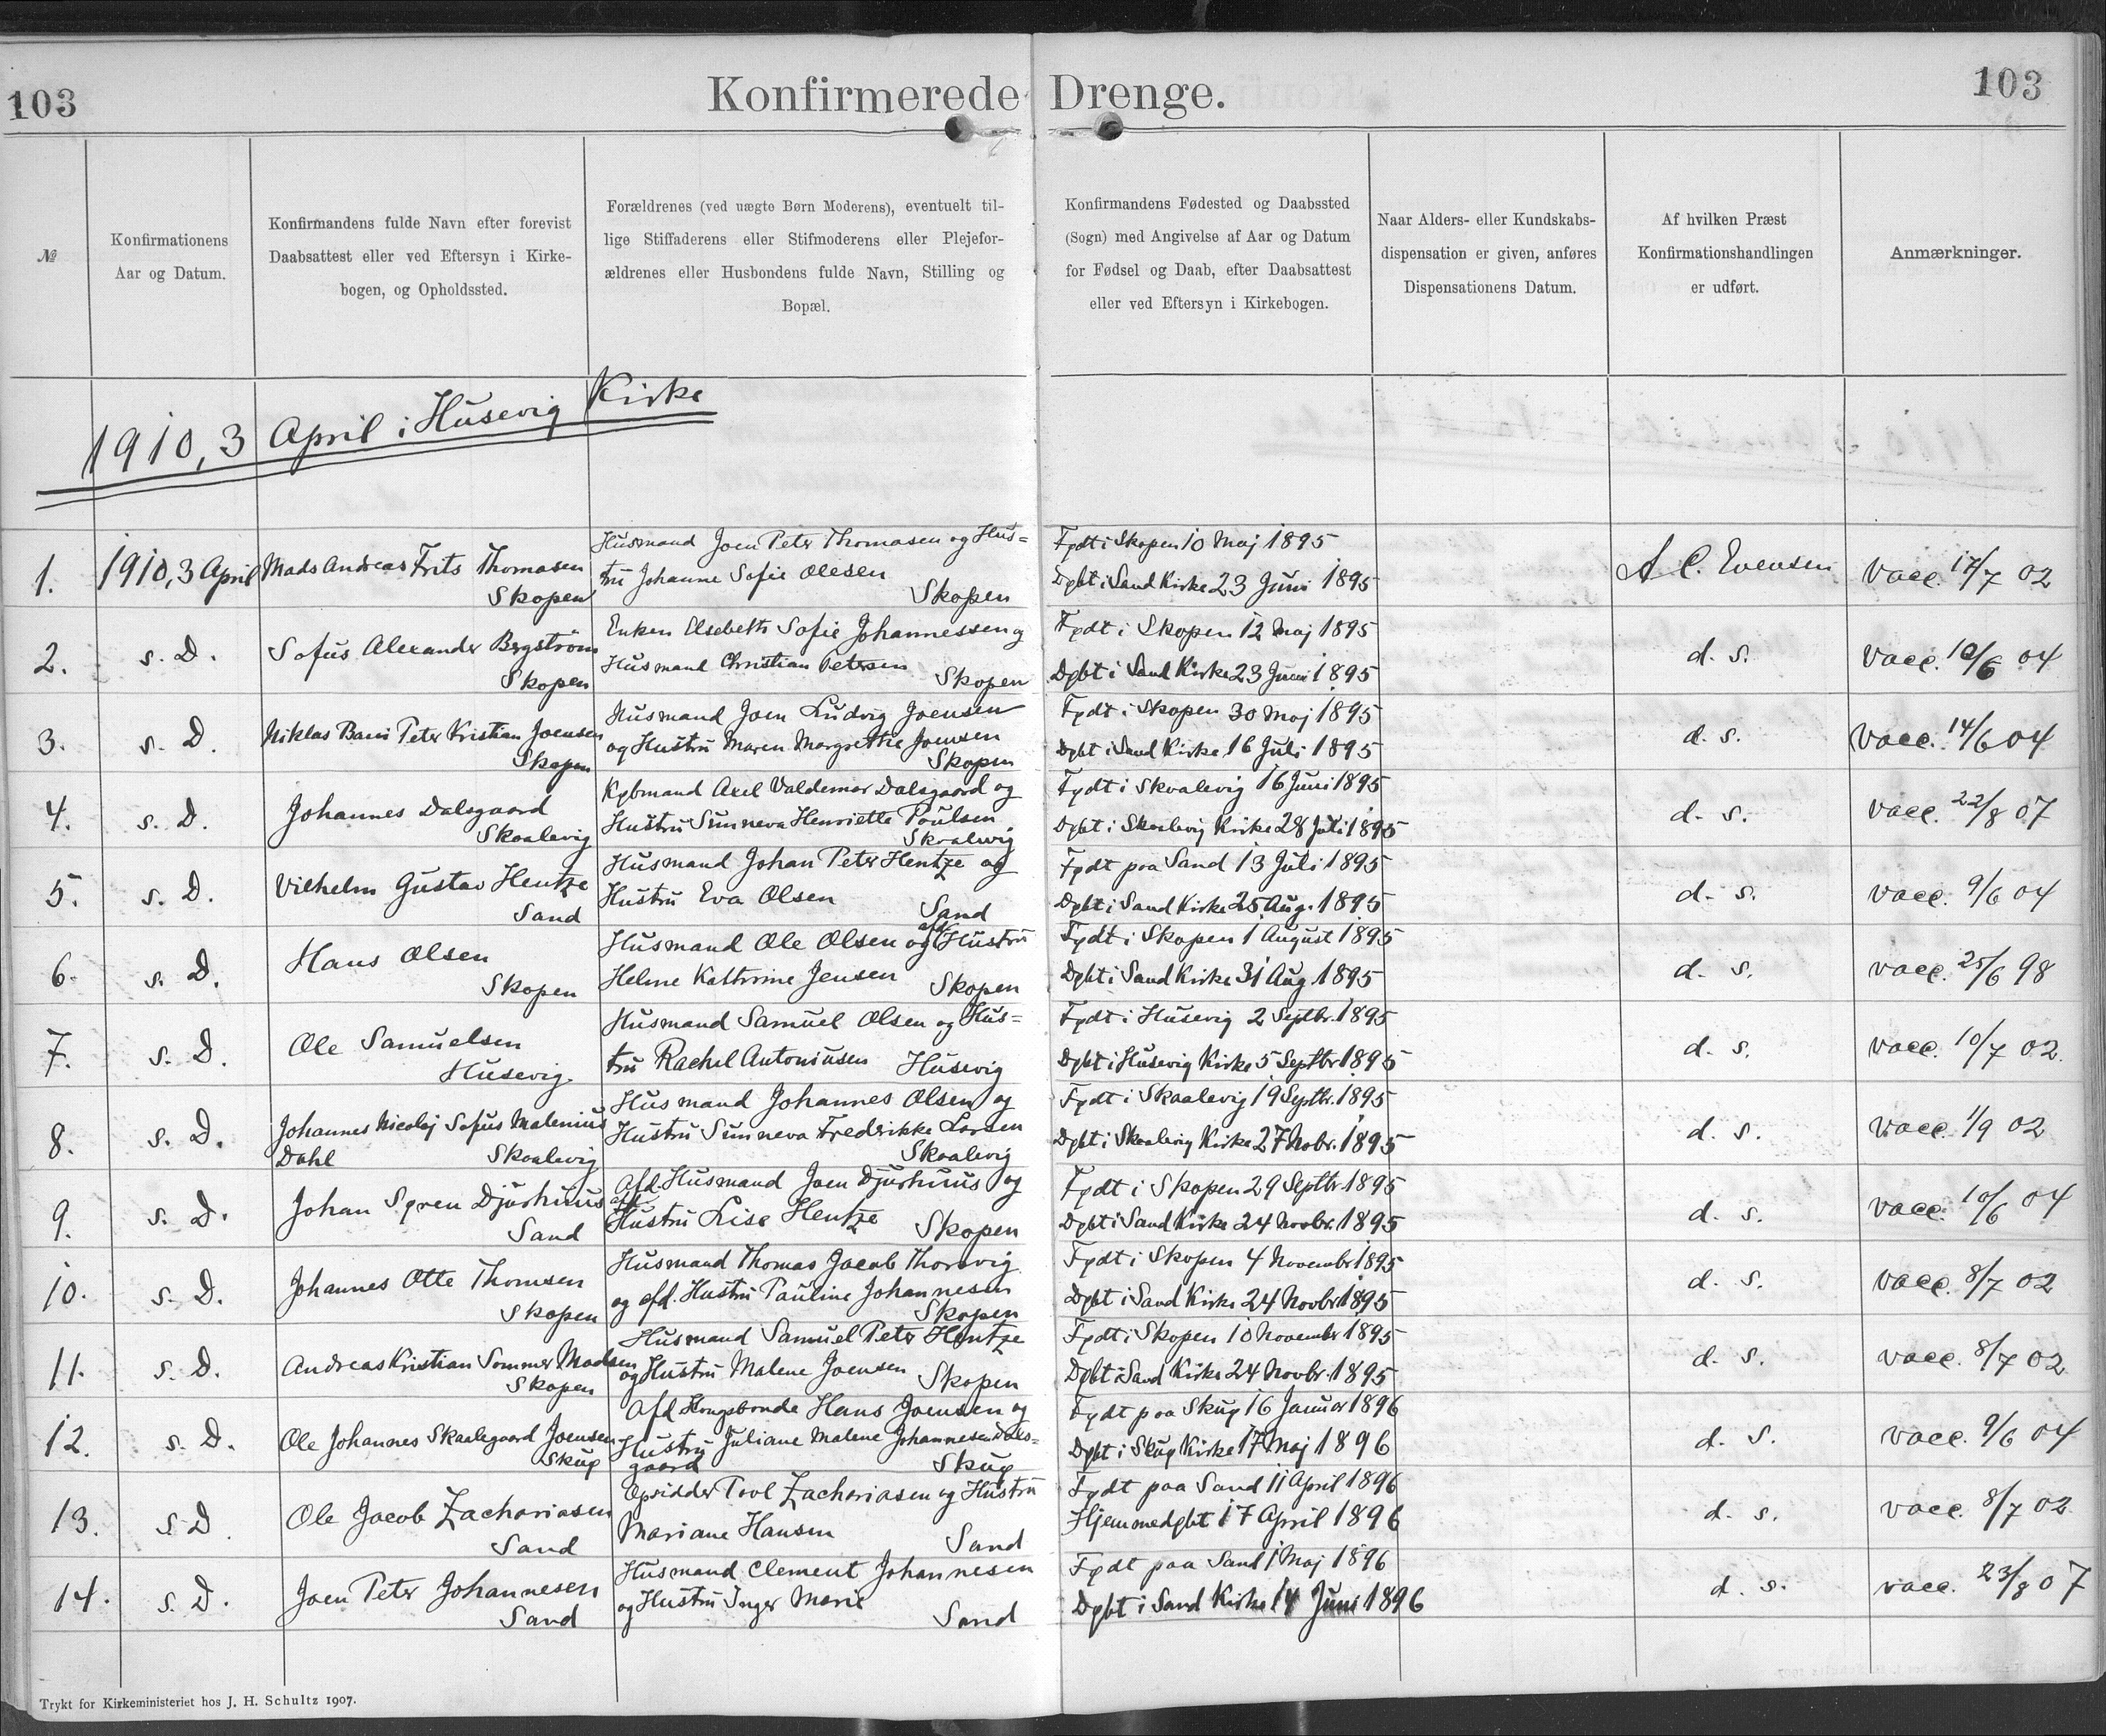 103
Konfirmerede Drenge.
103
№
Konfirmationens
Aar og Datum.
Konfirmandens fulde Navn efter forevist
Daabsattest eller ved Eftersyn i Kirke-
bogen, og Opholdssted.
Forældrenes (ved uægte Børn Moderens), eventuelt til-
lige Stiffaderens eller Stifmoderens eller Plejefor-
ældrenes eller Husbondens fulde Navn, Stilling og
Bopæl.
Konfirmandens Fødested og Daabssted
(Sogn) med Angivelse af Aar og Datum
for Fødsel og Daab, efter Daabsattest
eller ved Eftersyn i Kirkebogen.
Naar Alders- eller Kundskabs-
dispensation er given, anføres
Dispensationens Datum.
Af hvilken Præst
Konfirmationshandlingen
er udført.
Anmærkninger.
1910, 3 April i Husevig Kirke
1.
1910, 3 April
Mads Andreas Frits Thomasen
Skopen
Husmand Joen Peter Thomasen og Hus=
tru Johanne Sofie Olesen
Skopen
Født i Skopen 10 Maj 1895
Døbt i Sand Kirke 23 Juni 1895
A. C. Evensen
Vacc. 17/7 02
2.
s. D.
Sofus Alexander Bergström
Skopen
Enken Elsebeth Sofie Johannessen og
Husmand Christian Petersen
Skopen
Født i Skopen 12 Maj 1895
Døbt i Sand Kirke 23 Juni 1895
d. s.
Vacc. 10/6 04
3.
s. D.
Niklas Peter Kristian Joensen
Skopen
Husmand Joen Ludvig Joensen
og Hustru Maren Margrethe Joensen
Skopen
Født i Skopen 30 Maj 1895
Døbt i Sand Kirke 16 Juli 1895
d. s.
Vacc. 14/6 04
4.
s. D.
Johannes Dalsgaard
Skaalevig
Købmand Axel Valdemar Dalsgaard og
Hustru Sunneva Henriette Poulsen
Skaalevig
Født i Skaalevig 16 Juni 1895
Døbt i Skaalevig Kirke 28 Juli 1895
d. s.
Vacc. 22/8 07
5.
s. D.
Vilhelm Gustav Hentze
Sand
Husmand Johan Peter Hentze og
Hustru Eva Olsen
Sand
Født paa Sand 13 Juli 1895
Døbt i Sand Kirke 25 Aug. 1895
d. s.
vacc. 9/6 04
6.
s. D.
Hans Olsen
Skopen
Husmand Ole Olsen og afd. Hustru
Helene Kathrine Jensen
Skopen
Født i Skopen 1 August 1895
Døbt i Sand Kirke 31 Aug 1895
d. s.
vacc. 25/6 98
7.
s. D.
Ole Samuelsen
Husevig.
Husmand Samuel Olsen og Hus=
tru Rachel Antoniusen
Husevig
Født i Husevig 2 Septbr. 1895
Døbt i Husevig Kirke 5 Septbr 1895
d. s.
vacc. 10/7 02.
8.
s. D.
Johannes Nicolaj Sofus Malenius
Dahl
Skaalevig
Husmand Johannes Olsen og
Hustru Sunneva Fredrikke Larsen
Skaalevig
Født i Skaalevig 19 Septbr. 1895
Døbt i Skaalevig Kirke 27 Nobr. 1895
d. s.
Vacc. 1/9 02
9.
s. D.
Johan Søren Djurhuus
Sand
Afd. Husmand Joen Djurhuus og
afd. Hustru Lise Hentze
Skopen
Født i Skopen 29 Septbr 1895
Døbt i Sand Kirke 24 Novbr. 1895
d. s.
vacc. 10/6 04
10.
s. D.
Johannes Otte Thomsen
Skopen
Husmand Thomas Jacob Thorsvig
og afd. Hustru Pauline Johannesen
Skopen
Født i Skopen 4 November 1895
Døbt i Sand Kirke 24 Novbr 1895
d. s.
vacc. 8/7 02
11.
s. D.
Andreas Kristian Sommer Madsen
Skopen
Husmand Samuel Peter Hentze
og Hustru Malene Joensen
Skopen
Født i Skopen 10 November 1895
Døbt i Sand Kirke 24 Novbr. 1895
d. s.
vacc. 8/7 02
12.
s. D.
Ole Johannes Skaalegaard Joensen
Skuø
Afd Kongsbonde Hans Joensen og
Hustru Juliane Malene Johannesen Dals=
gaard
Skuø
Født paa Skuø 16 Januar 1896
Døbt i Skuø Kirke 17 Maj 1896
d. s.
vacc. 9/6 04
13.
s. D.
Ole Jacob Zachariasen
Sand
Opsidder Poul Zachariasen og Hustru
Mariane Hansen
Sand
Født paa Sand 11 April 1896
Hjemmedøbt 17 April 1896
d. s.
vacc. 8/7 02
14.
s. D.
Joen Peter Johannesen
Sand
Husmand Clement Johannesen
og Hustru Inger Marie
Sand
Født paa Sand 1 Maj 1896
Døbt i Sand Kirke 14 Juni 1896
d. s.
vacc. 23/8 07
Trykt for Kirkeministeriet hos J. H. Schultz 1907.